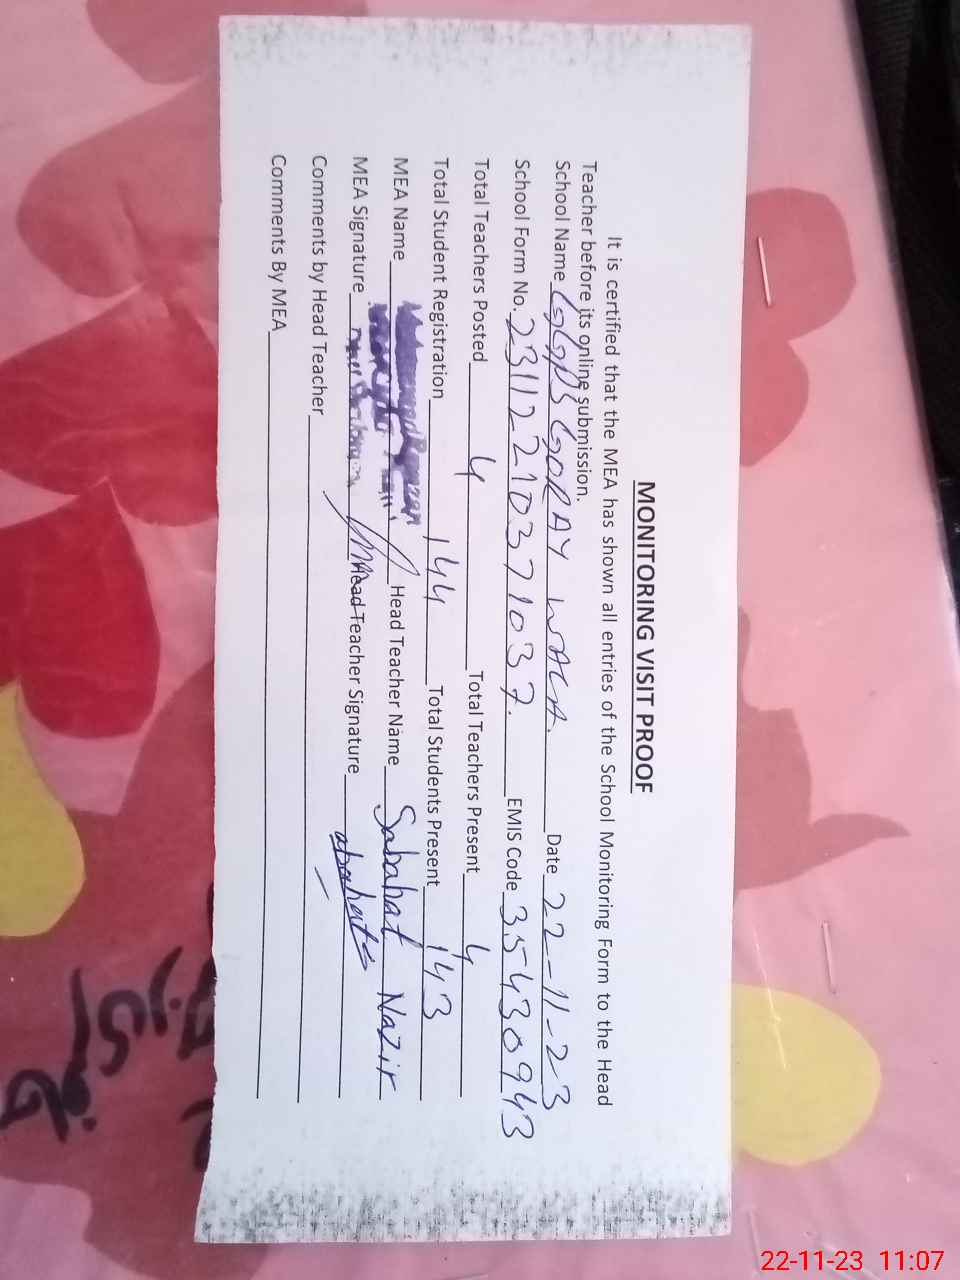 MONITORING VISIT PROOF
It is certified that the MEA has shown all entries of the School Monitoring Form to the Head
Teacher before its online submission.
School Name GGPS GORAY WALA. Date 22-11-23
School Form No. 23112210371037. EMIS Code 35430943
Total Teachers Posted 4 Total Teachers Present 4
Total Student Registration 144 Total Students Present 143
MEA Name Head Teacher Name Sabahat Nazir
MEA Signature Head Teacher Signature
Comments by Head Teacher
Comments By MEA
22-11-23 11:07